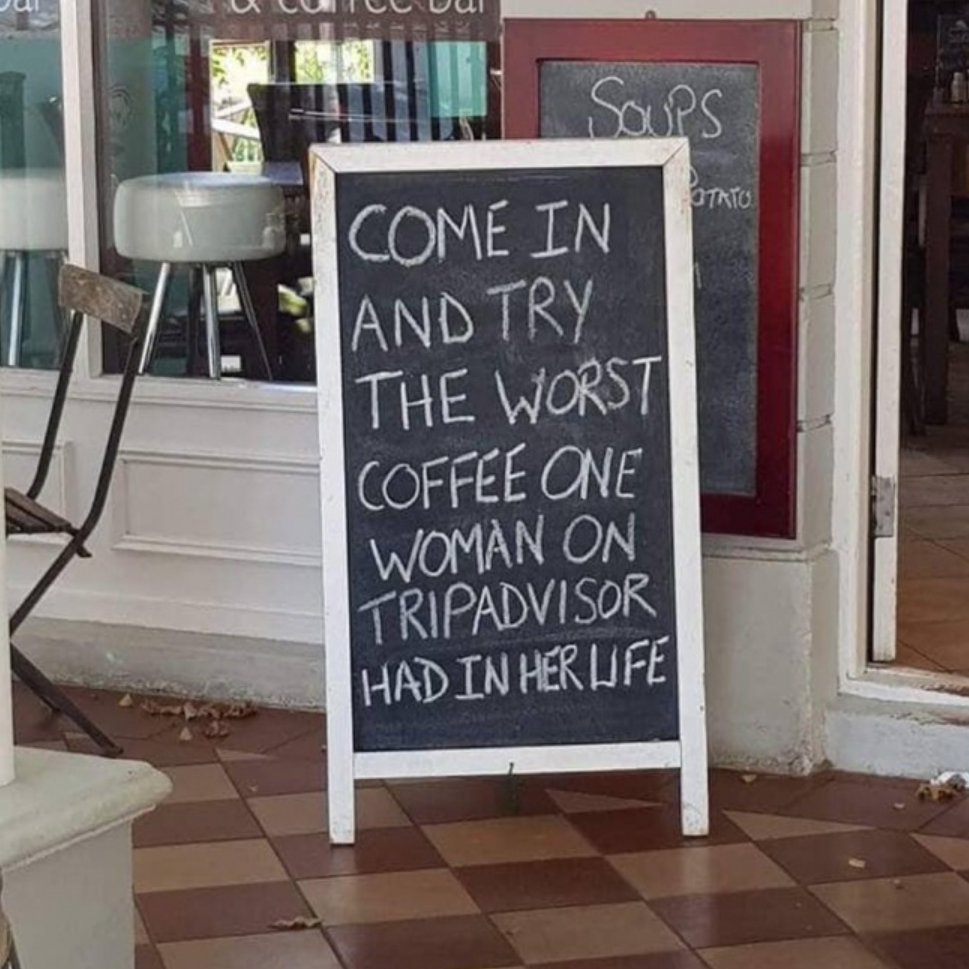 & coffee bar
SOUPS
COME IN
AND TRY
THE WORST
COFFEE ONE
WOMAN ON
TRIPADVISOR
HAD IN HER LIFE